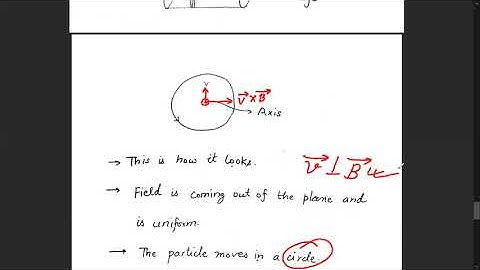 V
V × B
Axis
→ This is how it looks.
V ⊥ B
→ Field is coming out of the plane and
is uniform.
→ The particle moves in a circle.